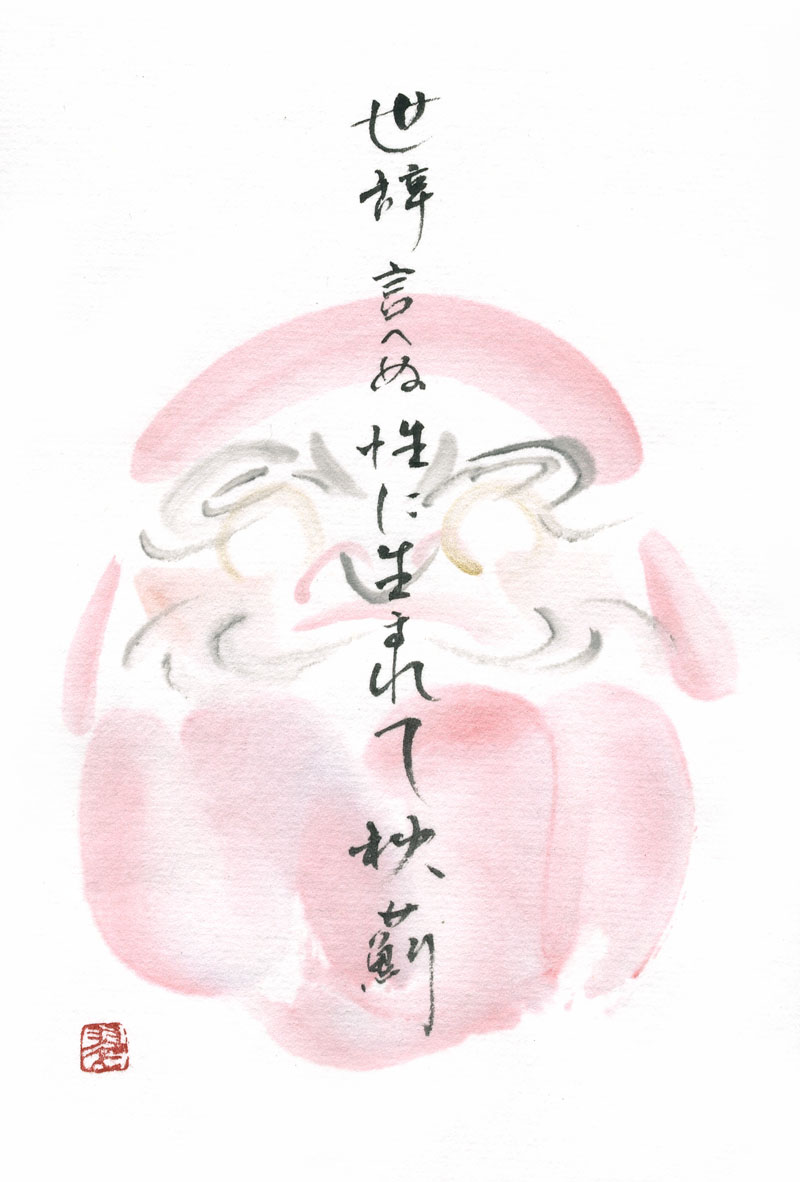 世辞言へぬ性に生まれて秋薊